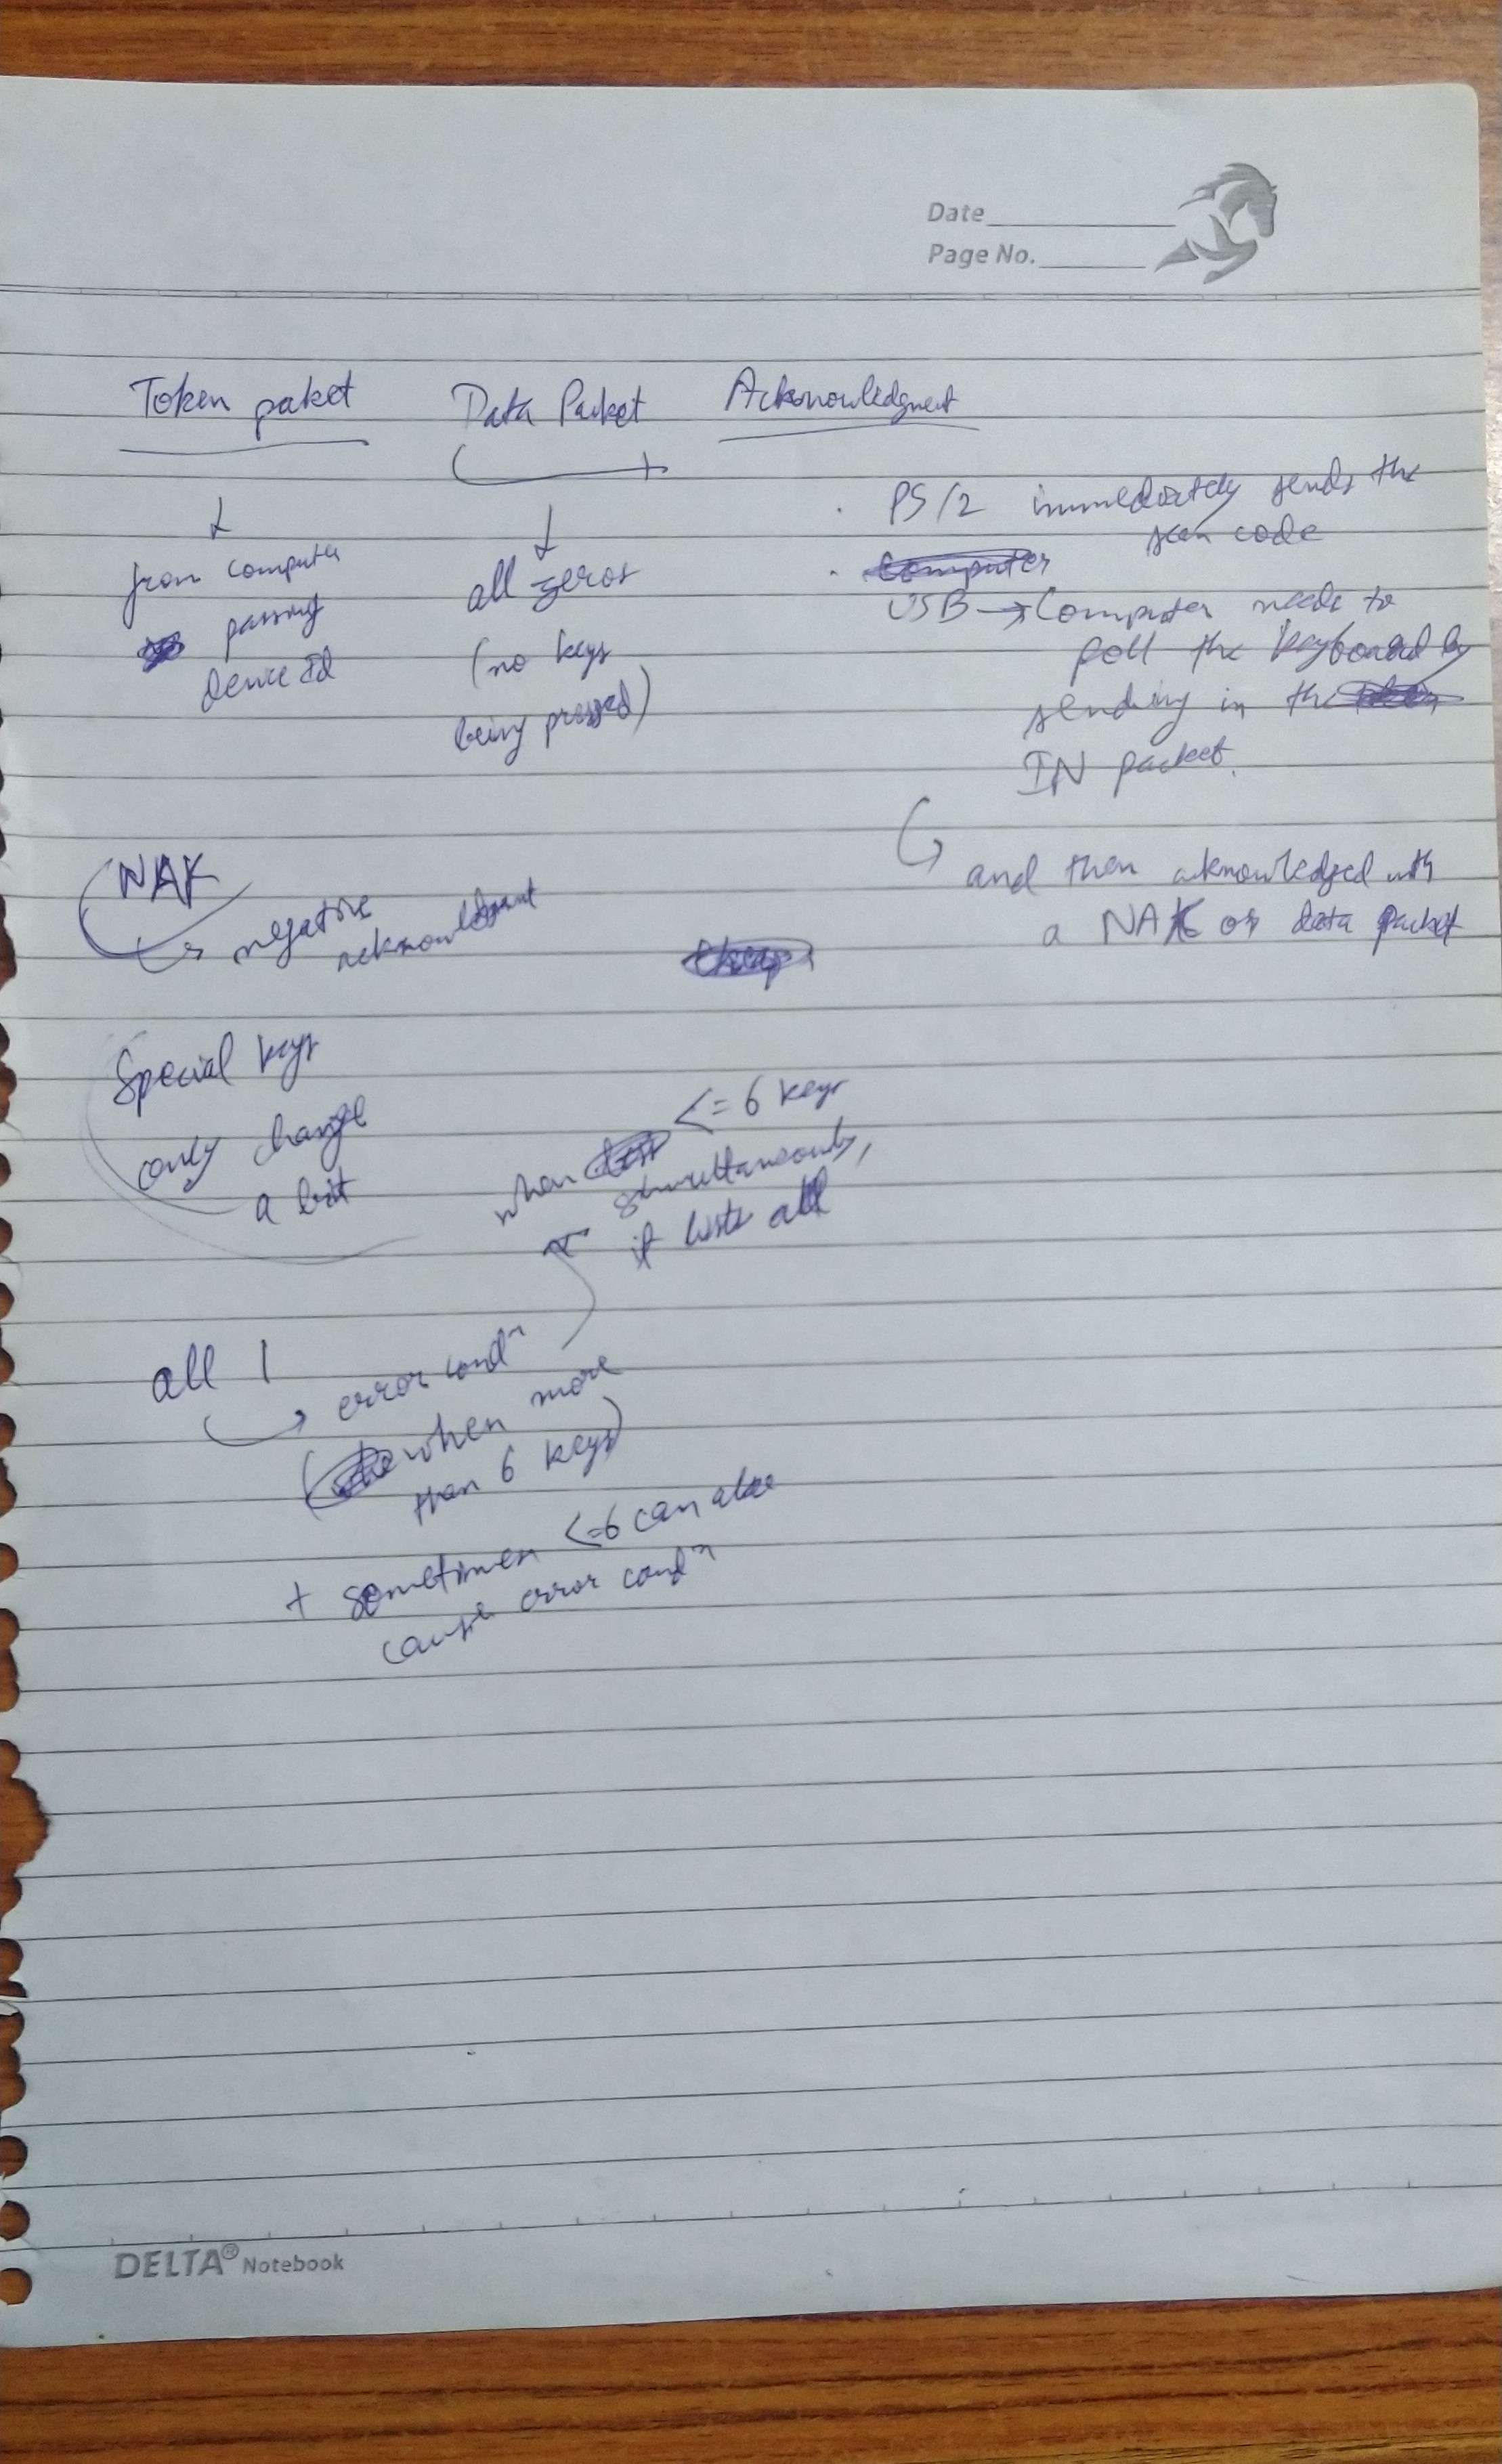 Date
Page No.
Token paket Data Packet Acknowledgment
from computer
passing
device Id
all zeros
(no keys
being pressed)
. PS/2 immediately sends the
scan code
. Computer
USB → Computer needs to
poll the keyboard by
sending in the
IN packet.
and then acknowledged with
a NAK or data packet
NAK
negative
acknowledgment
Special keys
only change
a bit
when <= 6 keys
simultaneously,
it lists all
all 1
error condⁿ
(when more
than 6 keys)
+ sometimes <=6 can also
cause error condⁿ
DELTA® Notebook